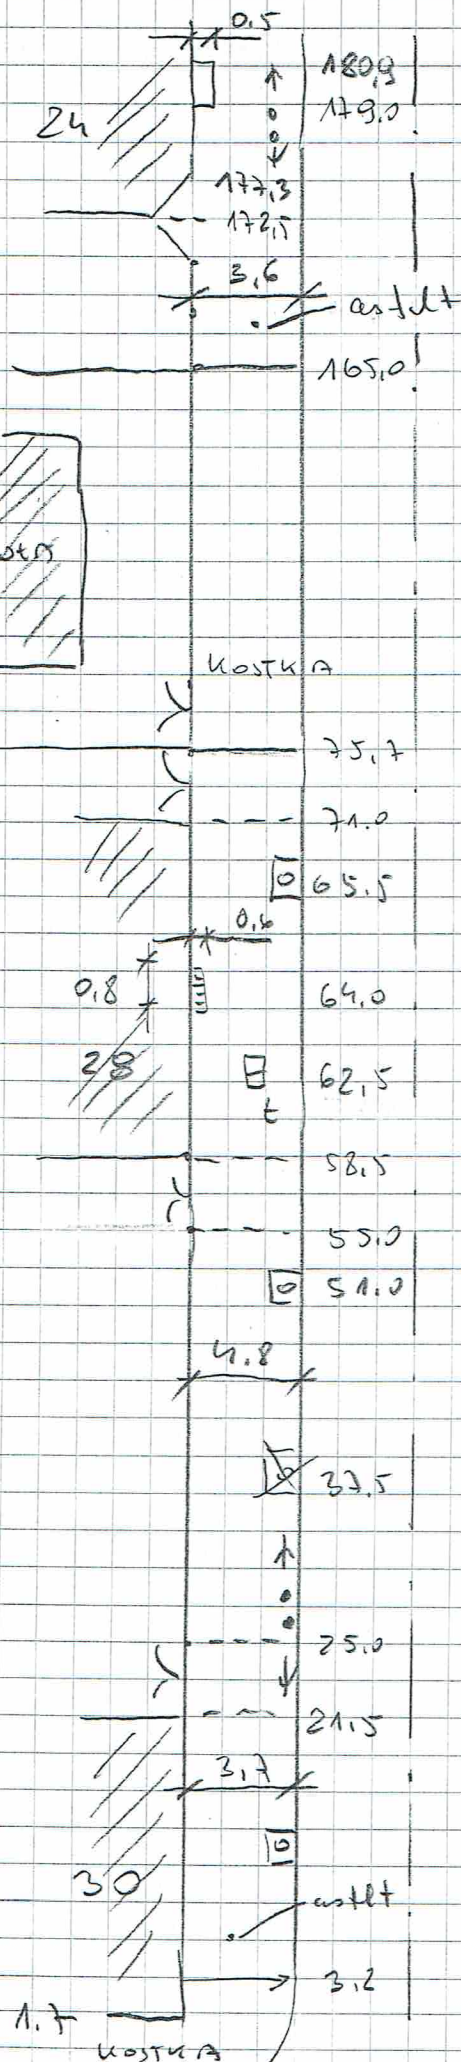 0.5
180,9
24
179,0
177,3
172,5
3,6
asfalt
165,0
KOSTKA
75,7
71.0
65.5
0,6
0,8
64,0
28
62,5
t
58,5
55.0
51.0
4.8
37,5
25.0
21,5
3,7
30
asflt
3,2
1.7
KOSTKA